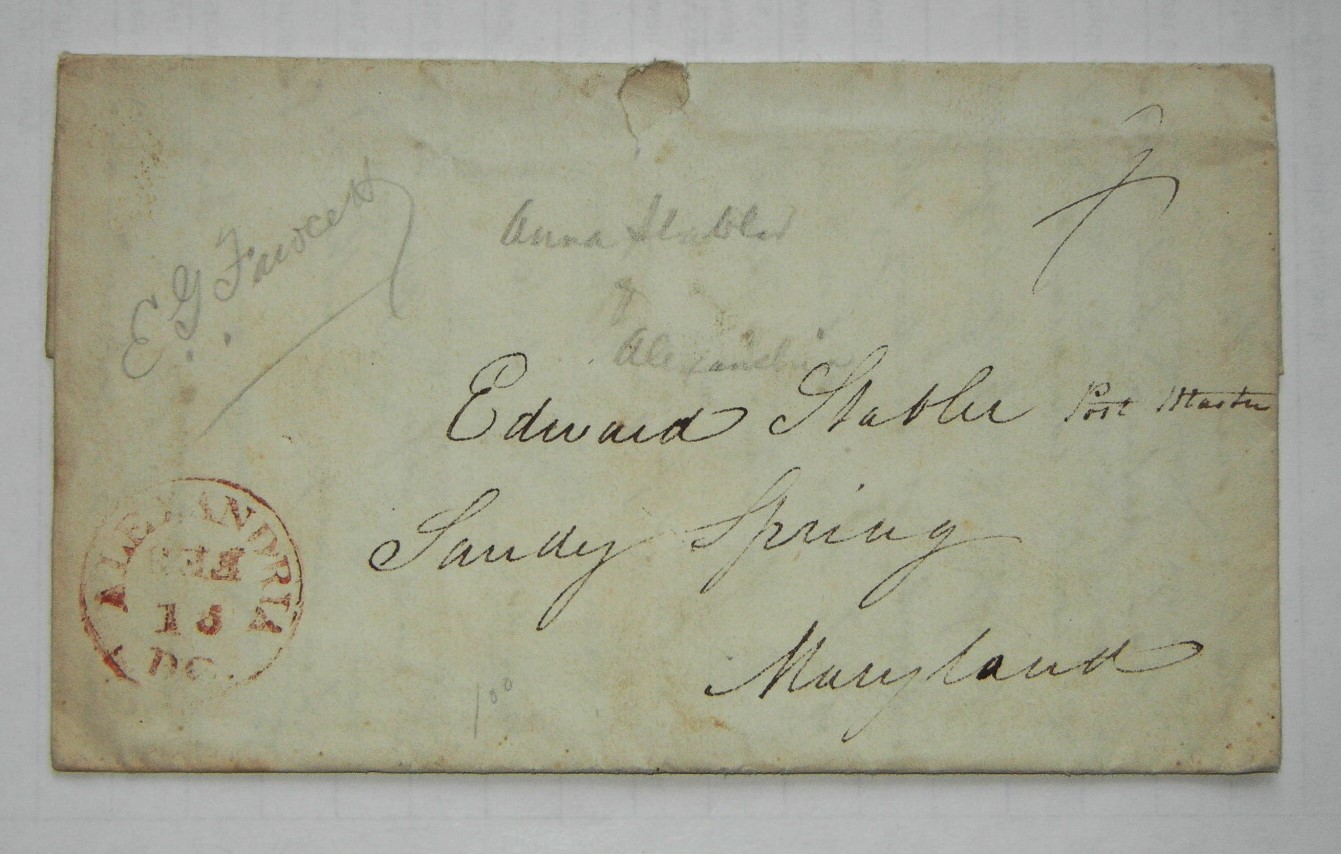 E. G. Fawcett
Anna Stabler
of
Alexandria
Edward Stabler Post Master
Sandy Spring
Maryland
ALEXANDRIA
FEB
18
D.C.
100